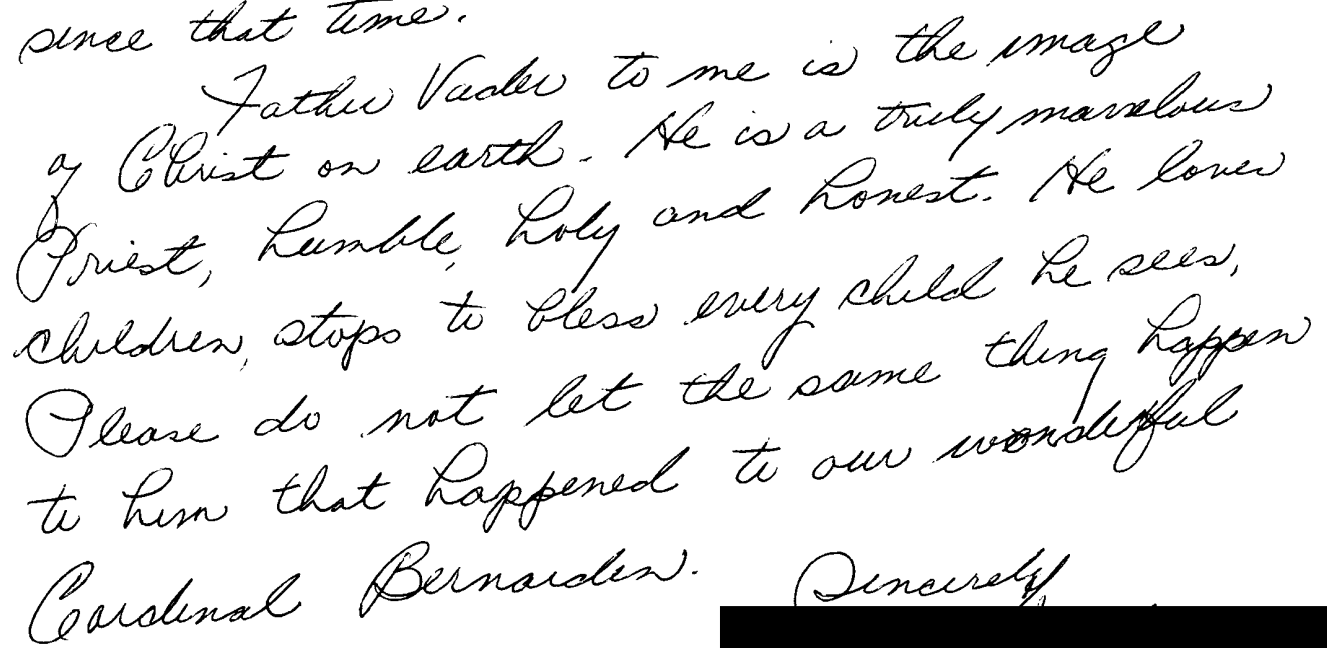 since that time.
Father Vader to me is the image
of Christ on earth. He is a truly marvelous
Priest, humble, holy and honest. He loves
children, stops to bless every child he sees,
Please do not let the same thing happen
to him that happened to our wonderful
Cardinal Bernarden.
Sincerely